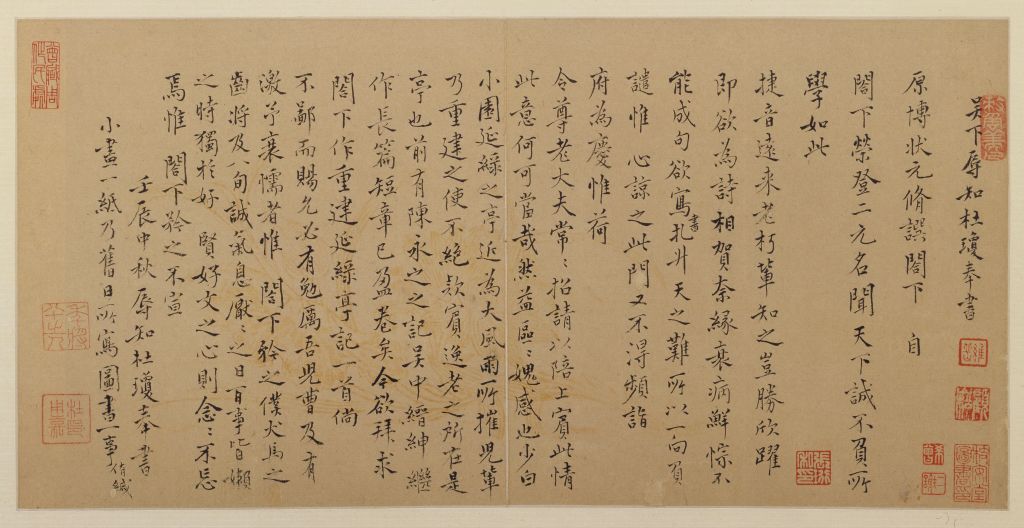 吳下辱知杜瓊奉書
原博狀元脩譔閤下　自
閤下榮登二元名聞天下誠不負所
學如此
捷音遠來老朽輩知之豈勝欣躍
即欲為詩相賀奈緣衰病鮮悰不
能成句欲寫書札廾天之難所以一向負
譴惟　心諒之此門又不得頻詣
府為慶惟荷
令尊老大夫常〻招請以陪上賓此情
此意何可當哉然益區〻媿感也少白
小園延綠之亭近為大風雨所摧兒輩
乃重建之使不絕欵賓逸老之所在是
亭也前有陳永之之記吳中縉紳繼
作長篇短章已盈卷矣今欲拜求
閤下作重建延綠亭記一首倘
不鄙而賜允必有勉厲吾兒曹及有
激予衰懦者惟　閤下矜之僕犬馬之
齒將及八旬誠氣息厭〻之日百事皆嬾
之時獨於好　賢好文之心則念〻不忘
焉惟　閤下矜之不宣
壬辰中秋辱知杜瓊奉書
小畫一紙乃舊日所寫圖書一事伴緘